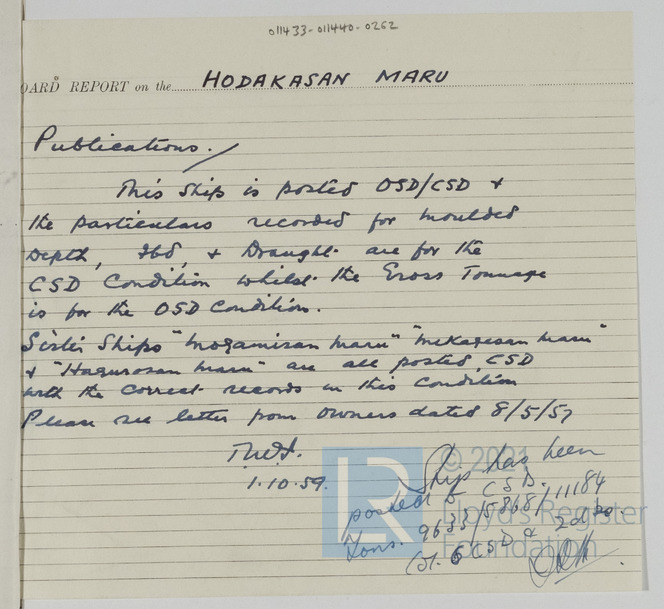 011433-011440-0262
OARD REPORT on the HODAKASAN MARU
Publications.
This Ship is posted OSD/CSD +
the particulars recorded for moulded
Depth, fbd, + Draught are for the
CSD Condition whilst the Gross Tonnage
is for the OSD Condition.
Sister Ships "Mogamisan Maru" "Mikagesan Maru"
+ "Hagurosan Maru" are all posted CSD
with the correct records in this Condition
Please see letter from Owners dated 8/5/57
1.10.59.
Ship has been
posted CSD.
Tons. 9633/5868/11184
CSD & 2 dk
LR
© 2021
Lloyd's Register
Foundation